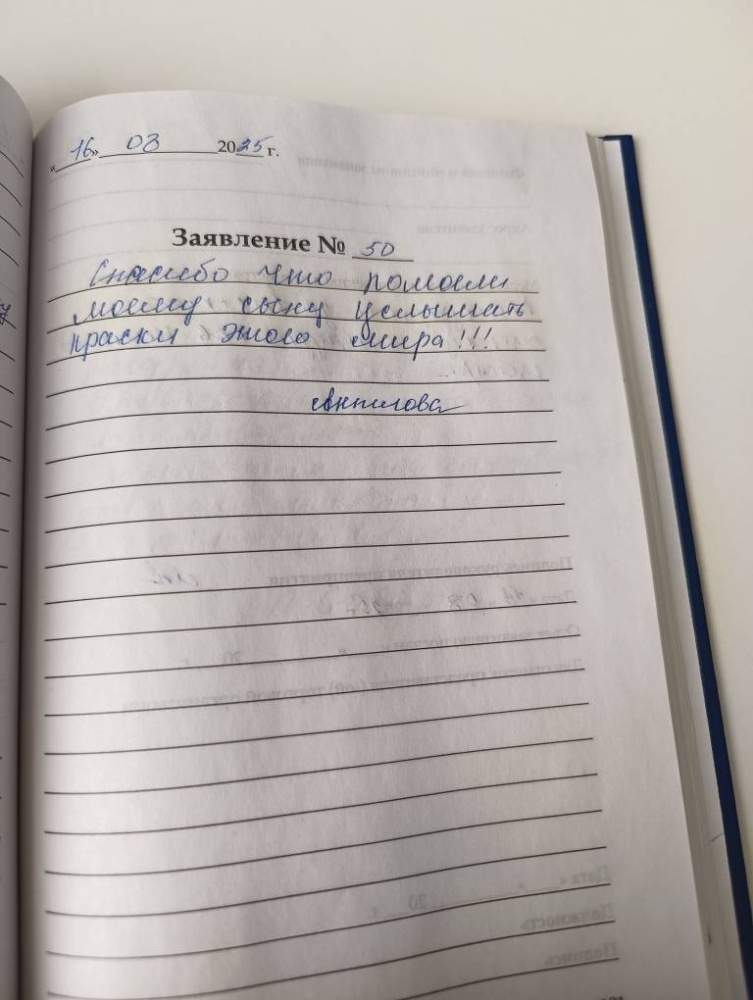 «16» 03 2025 г.
Заявление № 50
Спасибо что помогли
моему сыну услышать
краски этого мира!!!